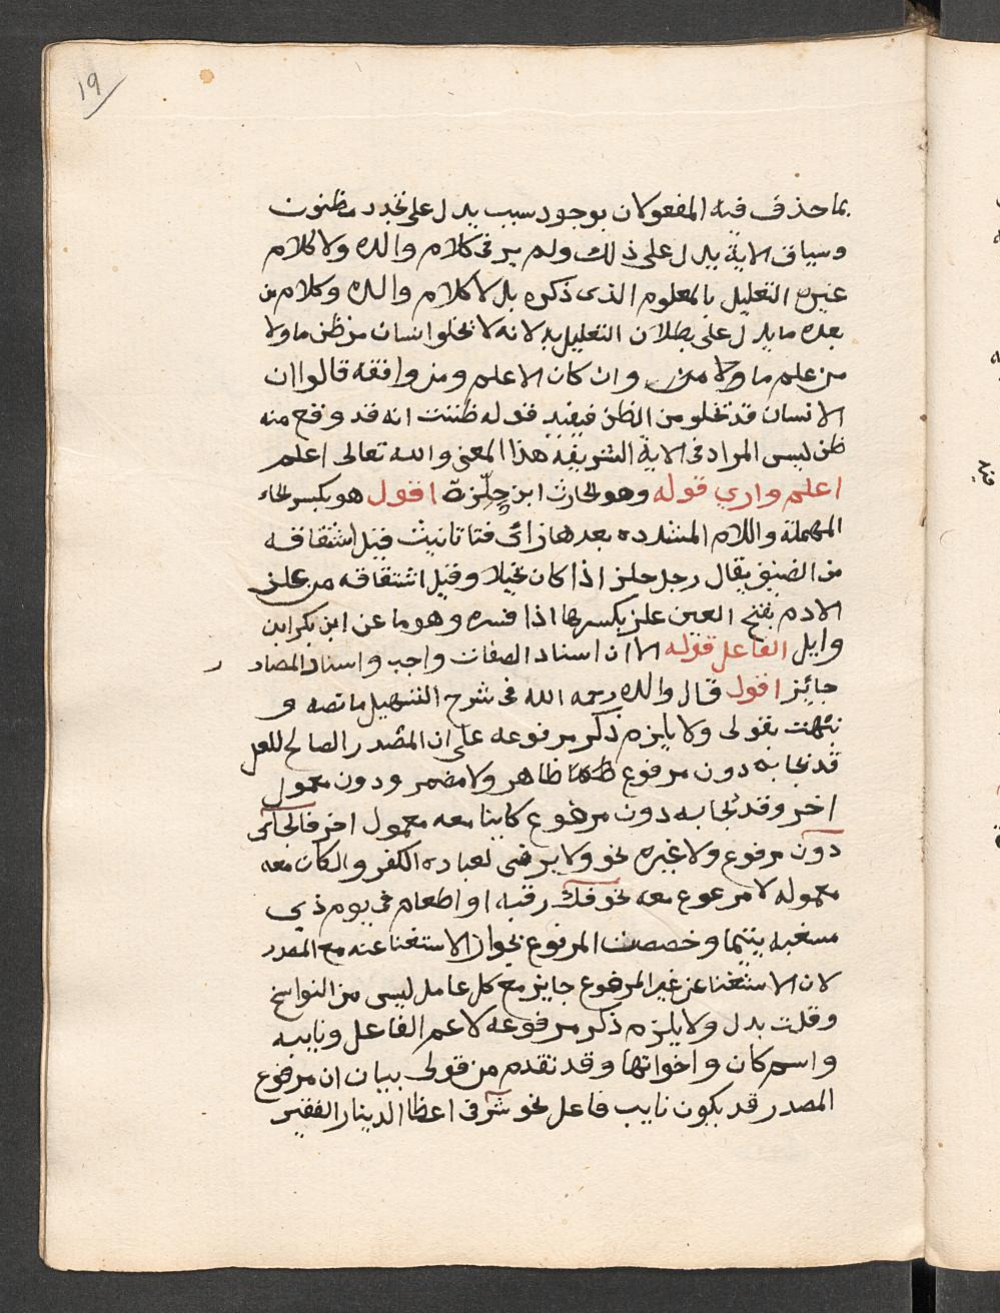 ١٩
بما حذف فيه المفعولان بوجود سبب يدل على تجدد مظنون
وسياق الاية يدل على ذلك ولم ير فى كلام والده ولا كلام
غيره التعليل بالمعلوم الذى ذكره بل لا كلام والده وكلام من
بعده ما يدل على بطلان التعليل به لانه لا يخلوا انسان من ظن ما ولا
من علم ما ولا من وان كان الاعلم ومن وافقه قالوا ان
الانسان قد تخلو من الظن فيفيد قوله ظننت انه قد وقع منه
ظن ليس المراد فى الاية الشريفة هذا المعنى والله تعالى اعلم
اعلم واري قوله وهو الحارث ابن حِلّزة اقول هو بكسر الحاء
المهملة واللام المشدده بعدها زائ فتا تانيث قيل اشتقاقه
من الضيق يقال رجل حلز اذا كان بخيلا وقيل اشتقاقه من علز
الادم بفتح العين علز بكسرها اذا قسره وهو ما عن ابن بكر ابن
وايل الفاعل قوله الا ان اسناد الصفات واجب واسناد المصادر
جائز اقول قال والده رحمه الله فى شرح التسهيل ما نصه و
نبهت بقولى ولا يلزم ذكر مرفوعه على ان المصدر الصالح للعمل
قد يجا به دون مرفوع ظاهر ولا مضمر ودون معمول
اخر وقد يجا به دون مرفوع كاينا معه معمول اخر فالجآئى
دون مرفوع ولا غيره نحو ولا يرضى لعباده الكفر والكائن معه
معموله لا مرعوع معه نحو فك رقبه او اطعام فى يوم ذي
مسغبه يتيما وخصصت المرفوع بجواز الاستغنا عنه مع المصدر
لان الاستغنا عن غير المرفوع جايز مع كل عامل ليس من النواسخ
وقلت بدل ولا يلزم ذكر مرفوعه لاعم الفاعل ونايبه
واسم كان واخواتها وقد تقدم من قولى ببيان ان مرفوع
المصدر قد يكون نايب فاعل نحو شرفى اعطا الدينار الفقير